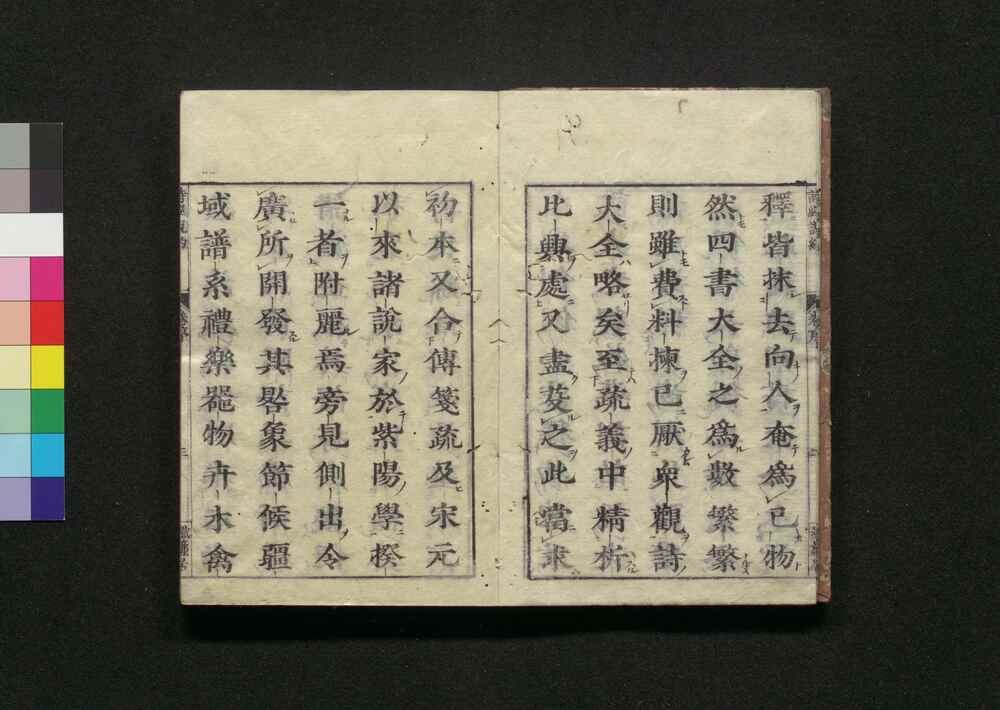 釋皆抹去向人奄爲已物
然四書大全之爲數繁繁
則雖費料揀已厭衆觀詩
大全略矣至疏義中精析
比興處又盡芟之此嘗隶
礿本又合傳箋疏及宋元
以來諸說家於紫陽學揆
一者附麗焉旁見側出令
廣所開發其畧象節候疆
域譜系禮樂器物卉木禽